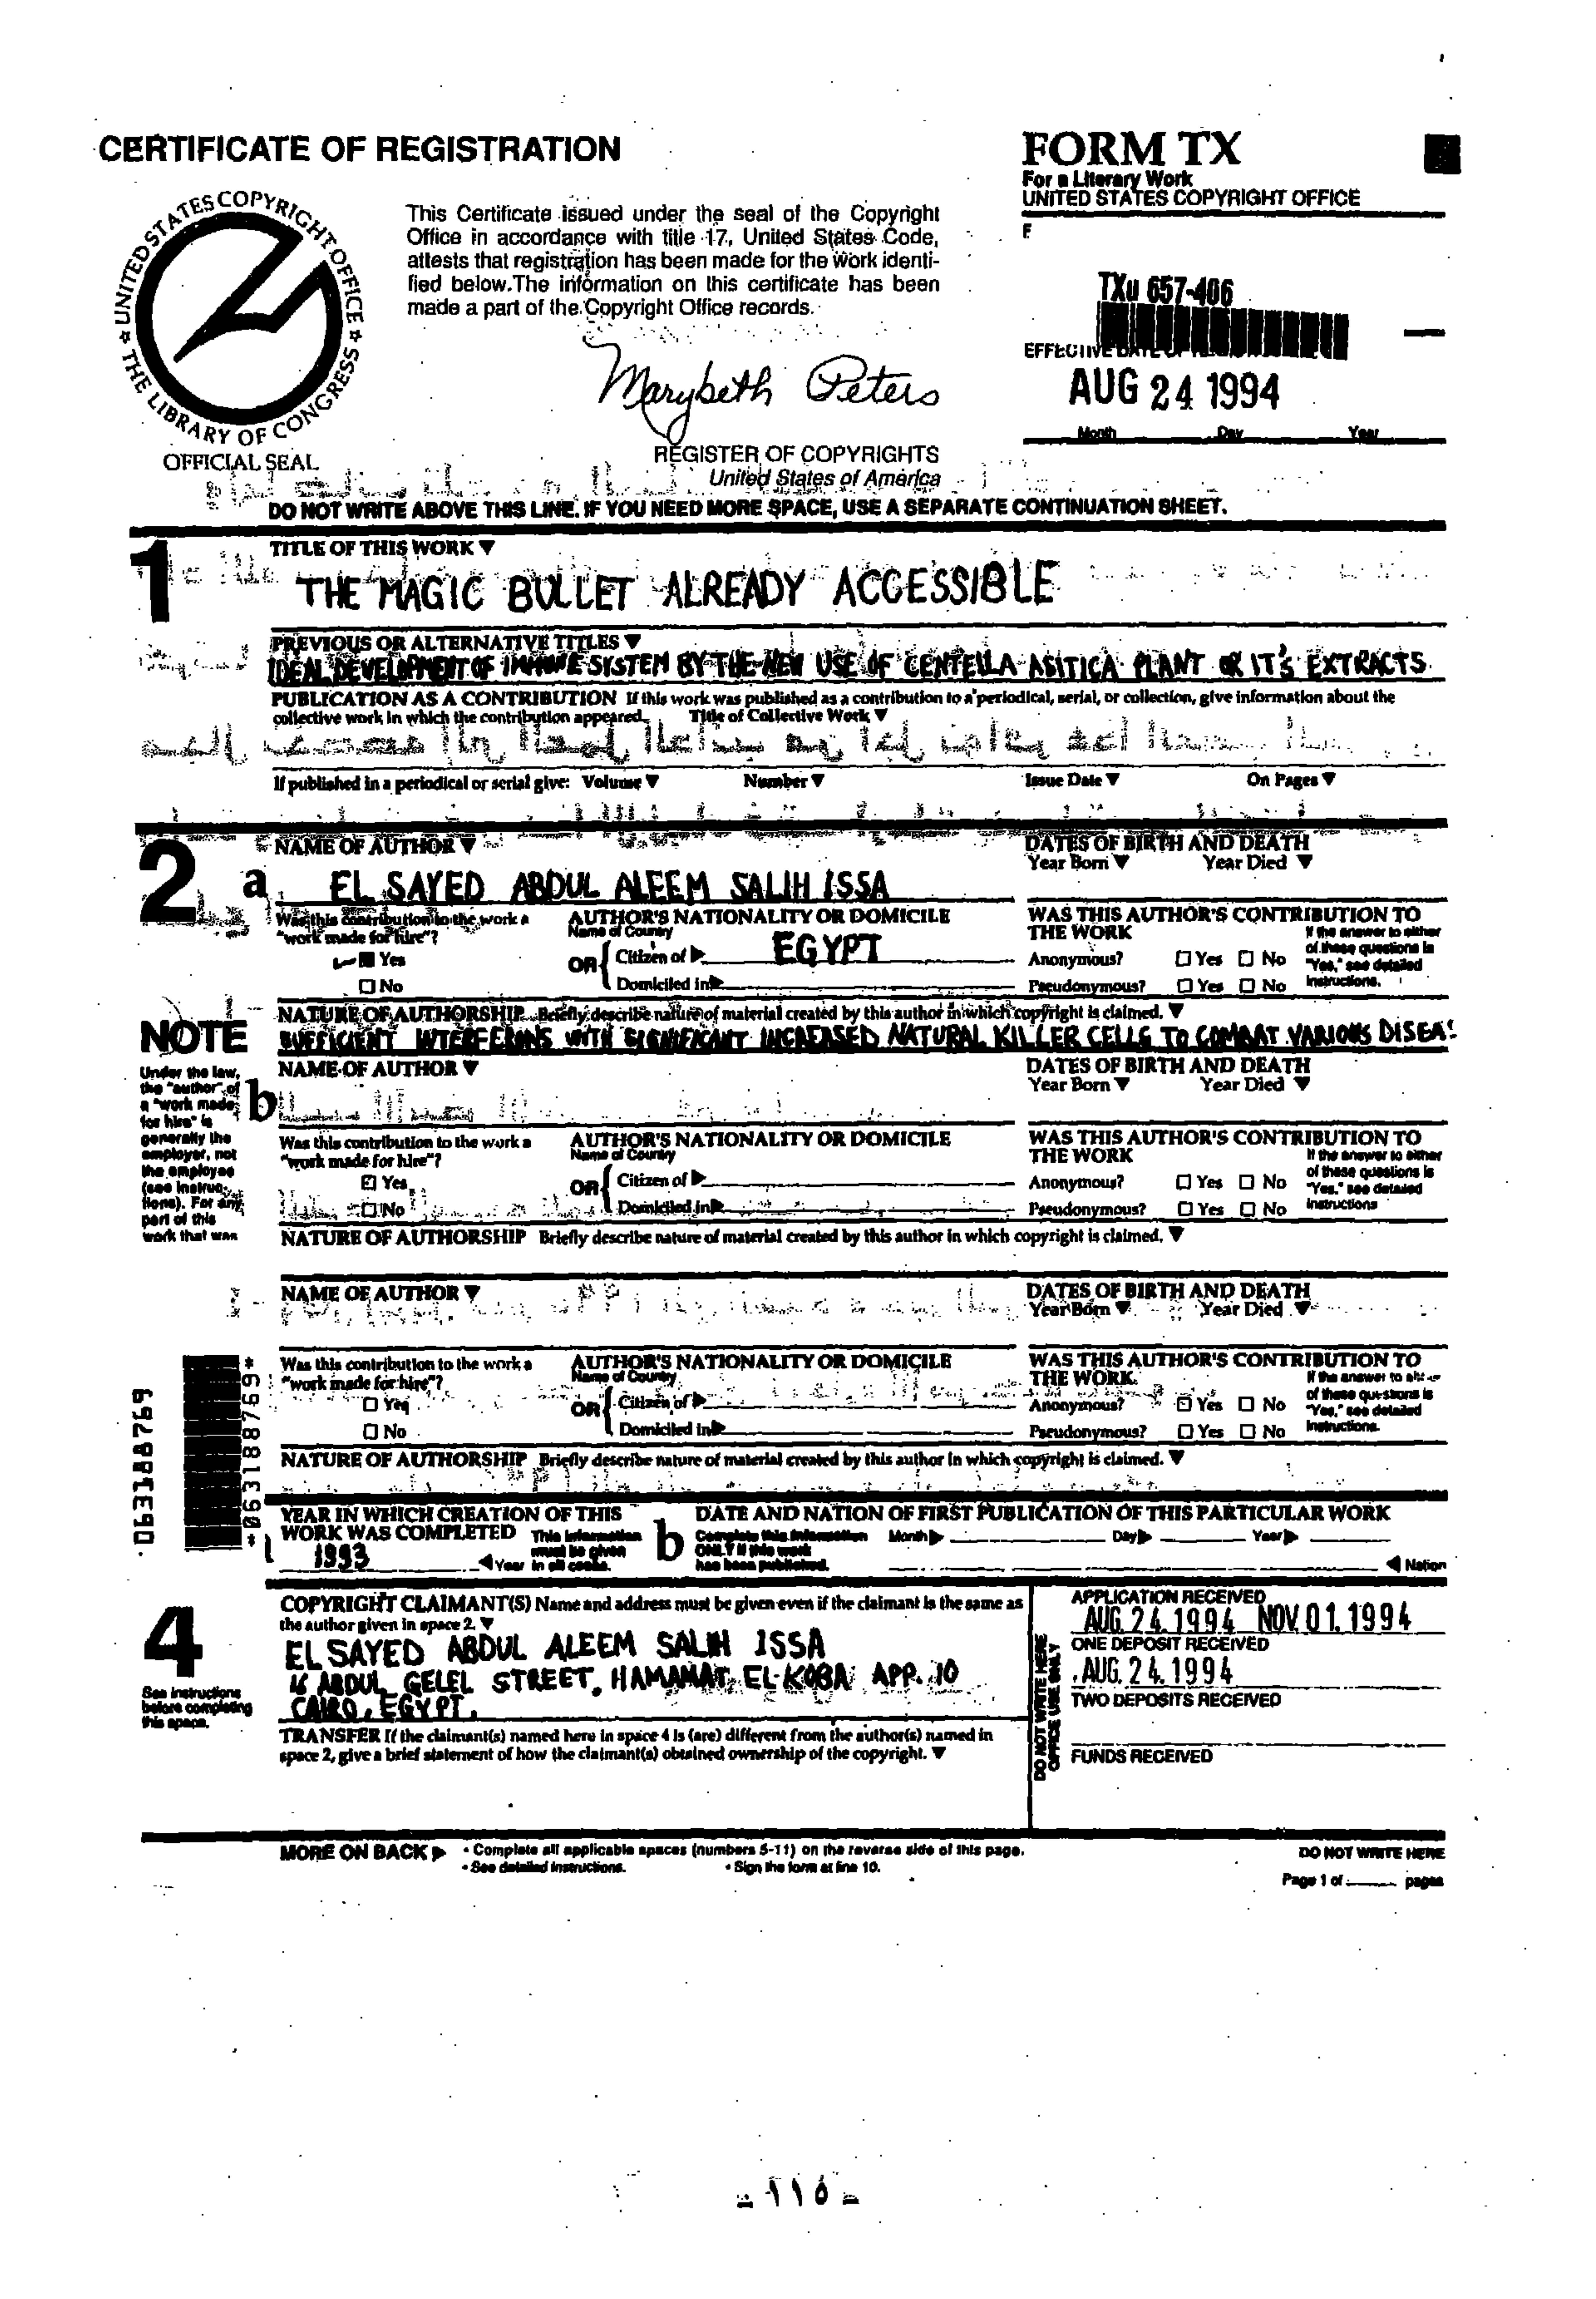 CERTIFICATE OF REGISTRATION
FORM TX
For a Literary Work
UNITED STATES COPYRIGHT OFFICE
UNITED STATES COPYRIGHT OFFICE
THE LIBRARY OF CONGRESS
OFFICIAL SEAL
This Certificate issued under the seal of the Copyright
Office in accordance with title 17, United States Code,
attests that registration has been made for the work identi-
fied below. The information on this certificate has been
made a part of the Copyright Office records.
Marybeth Peters
REGISTER OF COPYRIGHTS
United States of America
TXu 657-406
EFFECTIVE DATE OF
AUG 24 1994
Month Day Year
DO NOT WRITE ABOVE THIS LINE. IF YOU NEED MORE SPACE, USE A SEPARATE CONTINUATION SHEET.
1
TITLE OF THIS WORK ▼
THE MAGIC BULLET ALREADY ACCESSIBLE
PREVIOUS OR ALTERNATIVE TITLES ▼
IDEAL DEVELOPMENT OF IMMUNE SYSTEM BY THE NEW USE OF CENTELLA ASITICA PLANT OR IT'S EXTRACTS
PUBLICATION AS A CONTRIBUTION If this work was published as a contribution to a periodical, serial, or collection, give information about the
collective work in which the contribution appeared. Title of Collective Work ▼
If published in a periodical or serial give: Volume ▼ Number ▼ Issue Date ▼ On Pages ▼
2
a
NAME OF AUTHOR ▼
EL SAYED ABDUL ALEEM SALIH ISSA
DATES OF BIRTH AND DEATH
Year Born ▼ Year Died ▼
Was this contribution to the work a
"work made for hire"?
Yes
No
AUTHOR'S NATIONALITY OR DOMICILE
Name of Country
OR { Citizen of ▶ EGYPT
Domiciled in ▶
WAS THIS AUTHOR'S CONTRIBUTION TO
THE WORK
Anonymous? Yes No
Pseudonymous? Yes No
If the answer to either
of these questions is
"Yes," see detailed
instructions.
NATURE OF AUTHORSHIP Briefly describe nature of material created by this author in which copyright is claimed. ▼
SUFFICIENT INTERFERONS WITH SIGNIFICANT INCREASED NATURAL KILLER CELLS TO COMBAT VARIOUS DISEA
NOTE
Under the law,
the "author" of
a "work made
for hire" is
generally the
employer, not
the employee
(see instruc-
tions). For any
part of this
work that was
b
NAME OF AUTHOR ▼
DATES OF BIRTH AND DEATH
Year Born ▼ Year Died ▼
Was this contribution to the work a
"work made for hire"?
Yes
No
AUTHOR'S NATIONALITY OR DOMICILE
Name of Country
OR { Citizen of ▶
Domiciled in ▶
WAS THIS AUTHOR'S CONTRIBUTION TO
THE WORK
Anonymous? Yes No
Pseudonymous? Yes No
If the answer to either
of these questions is
"Yes," see detailed
instructions
NATURE OF AUTHORSHIP Briefly describe nature of material created by this author in which copyright is claimed. ▼
NAME OF AUTHOR ▼
DATES OF BIRTH AND DEATH
Year Born ▼ Year Died ▼
Was this contribution to the work a
"work made for hire"?
Yes
No
AUTHOR'S NATIONALITY OR DOMICILE
Name of Country
OR { Citizen of ▶
Domiciled in ▶
WAS THIS AUTHOR'S CONTRIBUTION TO
THE WORK
Anonymous? Yes No
Pseudonymous? Yes No
If the answer to either
of these questions is
"Yes," see detailed
instructions.
NATURE OF AUTHORSHIP Briefly describe nature of material created by this author in which copyright is claimed. ▼
063188769
*063188769*
YEAR IN WHICH CREATION OF THIS
WORK WAS COMPLETED This information
must be given
in all cases.
1993 ◀ Year
b
DATE AND NATION OF FIRST PUBLICATION OF THIS PARTICULAR WORK
Complete this information
ONLY if this work
has been published.
Month ▶ Day ▶ Year ▶
◀ Nation
4
See instructions
before completing
this space.
COPYRIGHT CLAIMANT(S) Name and address must be given even if the claimant is the same as
the author given in space 2. ▼
EL SAYED ABDUL ALEEM SALIH ISSA
16 ABDUL GELEL STREET, HAMAMAT, EL-KOBA APP. 10
CAIRO, EGYPT.
TRANSFER If the claimant(s) named here in space 4 is (are) different from the author(s) named in
space 2, give a brief statement of how the claimant(s) obtained ownership of the copyright. ▼
DO NOT WRITE HERE
OFFICE USE ONLY
APPLICATION RECEIVED
AUG. 24. 1994 NOV. 01. 1994
ONE DEPOSIT RECEIVED
AUG. 24. 1994
TWO DEPOSITS RECEIVED
FUNDS RECEIVED
MORE ON BACK ▶ • Complete all applicable spaces (numbers 5-11) on the reverse side of this page.
• See detailed instructions. • Sign the form at line 10.
DO NOT WRITE HERE
Page 1 of pages
- ١١٥ -